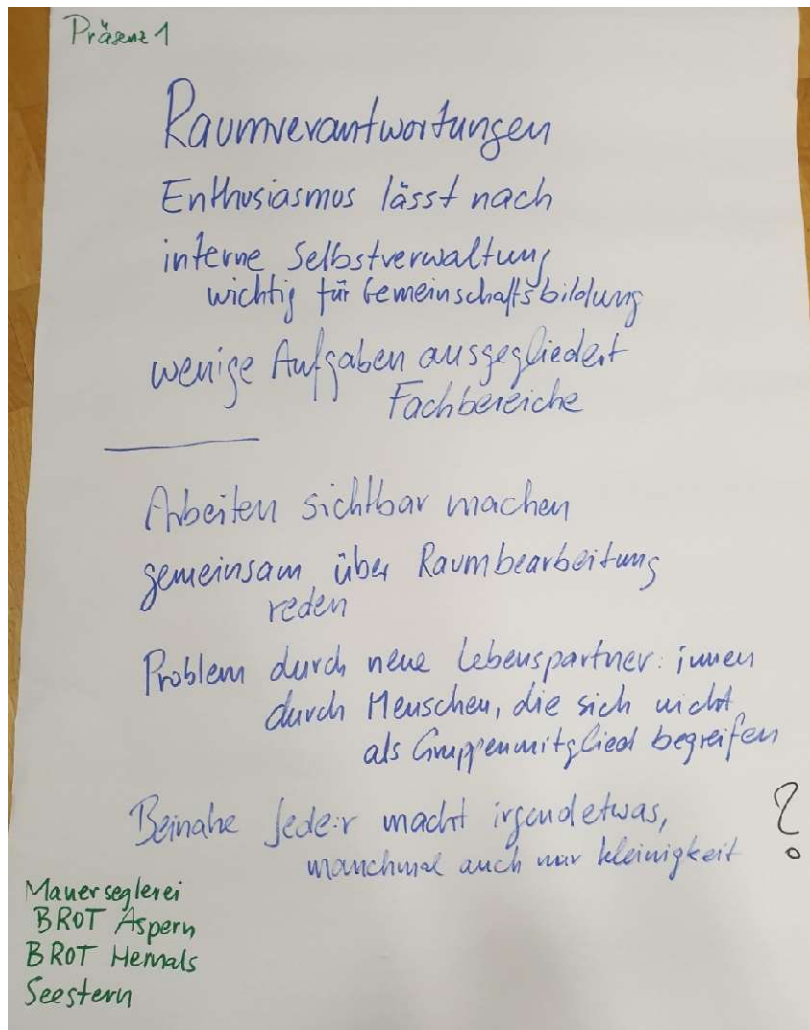 Präsenz 1
Raumverantwortungen
Enthusiasmus lässt nach
interne Selbstverwaltung
wichtig für Gemeinschaftsbildung
wenige Aufgaben ausgegliedert
Fachbereiche
Arbeiten sichtbar machen
gemeinsam über Raumbearbeitung
reden
Problem durch neue Lebenspartner:innen
durch Menschen, die sich nicht
als Gruppenmitglied begreifen
Beinahe Jede:r macht irgendetwas,
manchmal auch nur kleinigkeit ?
Mauerseglerei
BROT Aspern
BROT Hernals
Seestern